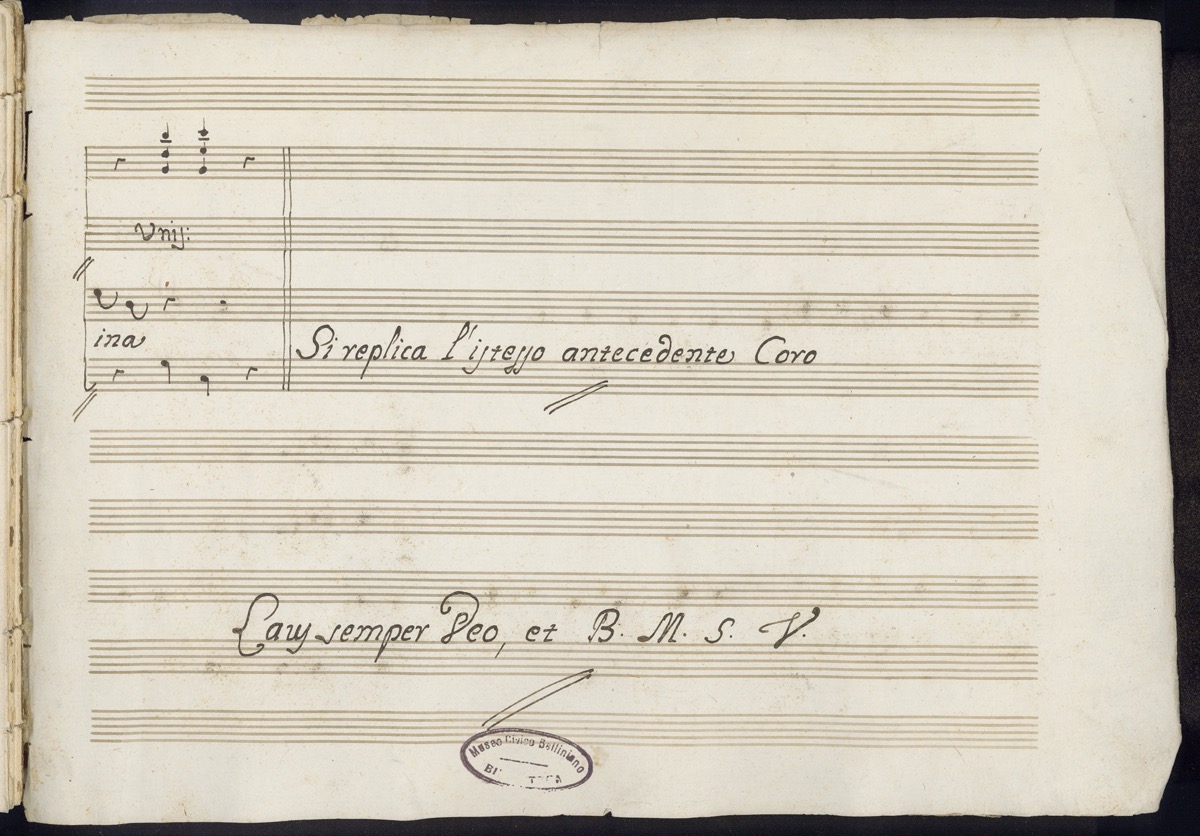 Unis:
ina
Si replica l'istesso antecedente Coro
Laus semper Deo, et B. M. S. V.
Museo Civico Belliniano